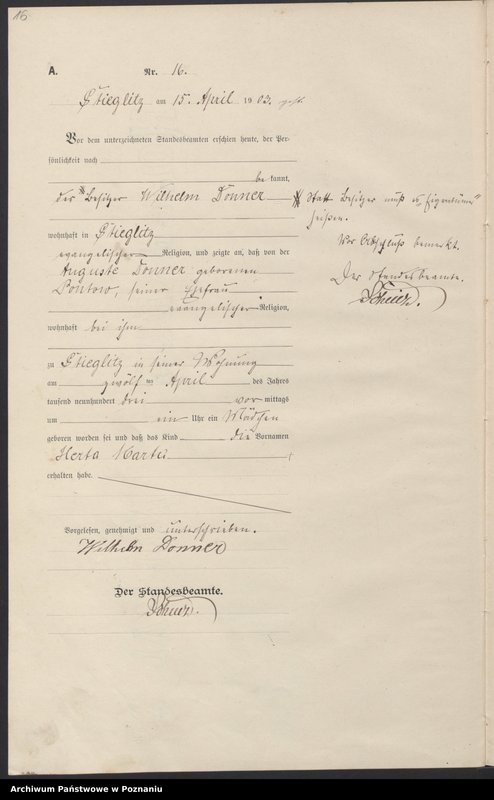 16
A. Nr. 16.
Stieglitz am 15. April 1903.
Vor dem unterzeichneten Standesbeamten erschien heute, der Per-
sönlichkeit nach
be kannt,
der Besitzer Wilhelm Donner
wohnhaft in Stieglitz
evangelischer Religion, und zeigte an, daß von der
Auguste Donner geborenen
Pontow, seiner Ehefrau
evangelischer Religion,
wohnhaft bei ihm
zu Stieglitz in seiner Wohnung
am zwölf ten April des Jahres
tausend neunhundert drei vor mittags
um ein Uhr ein Mädchen
geboren worden sei und daß das Kind die Vornamen
Herta
erhalten habe.
Vorgelesen, genehmigt und unterschrieben.
Wilhelm Donner
Der Standesbeamte.
Statt Besitzer muß es „Eigentümer“
heißen.
Vor Abschluß bemerkt.
Der Standesbeamte.
Archiwum Państwowe w Poznaniu